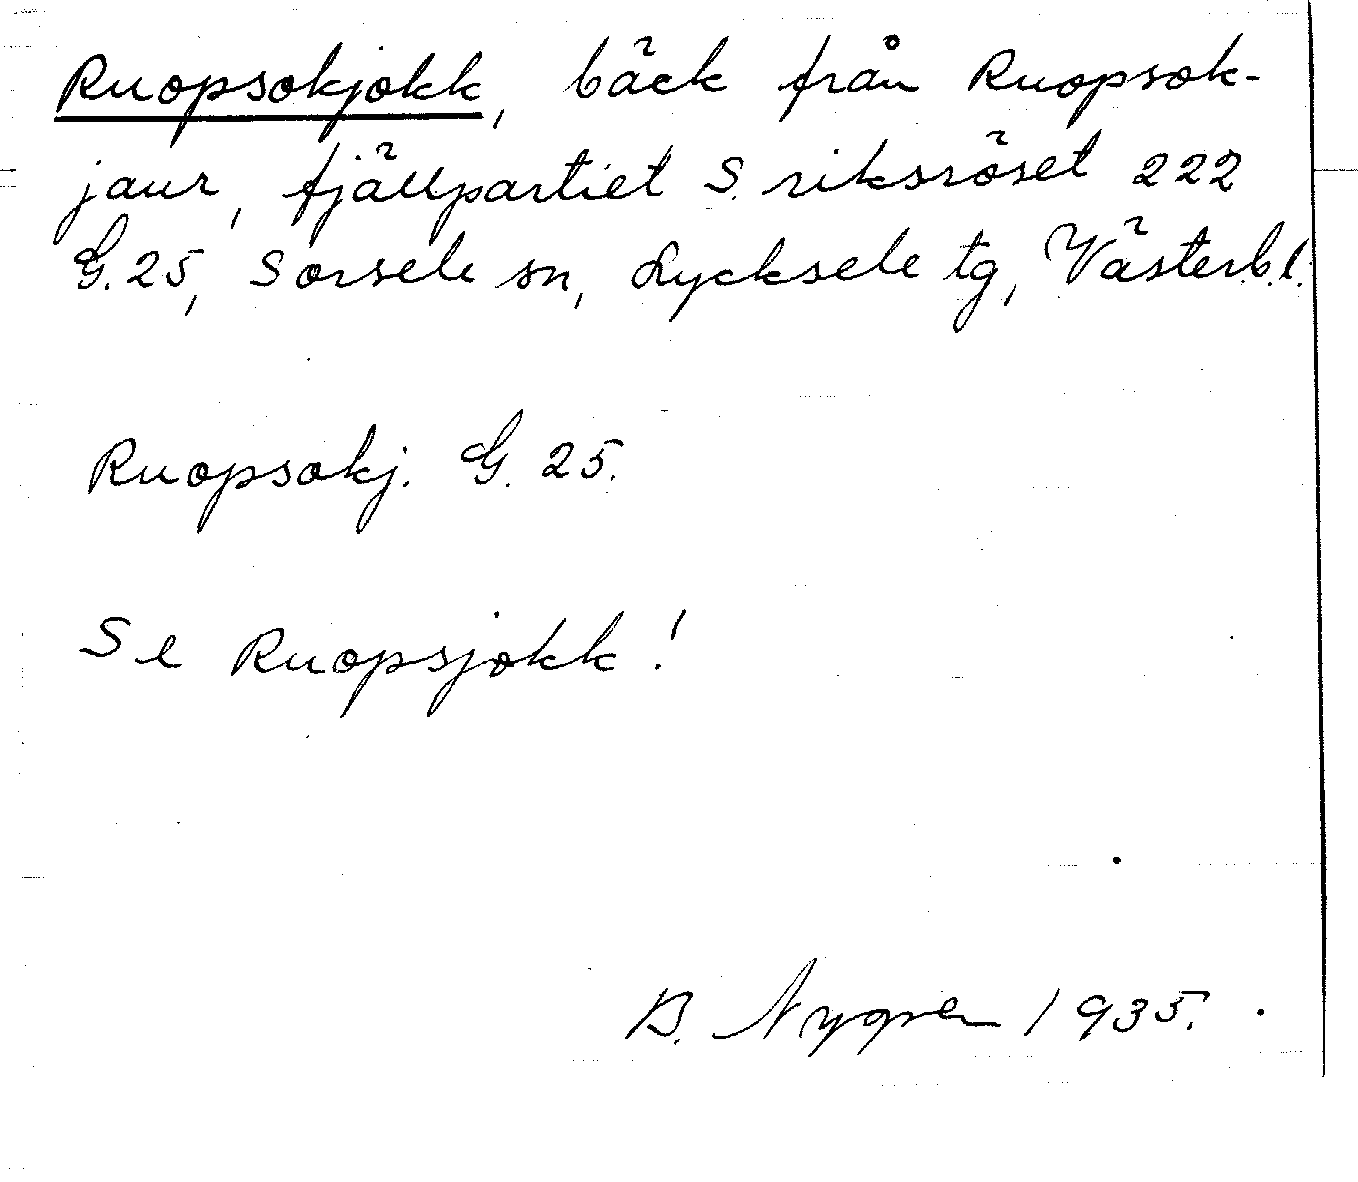 Ruopsokjokk, bäck från Ruopsok-
jaur, fjällpartiet S. riksröset 222
G. 25, Sorsele sn, Lycksele tg, Västerb.l.
Ruopsokj. G. 25.
Se Ruopsjokk!
B. Nygren 1935.